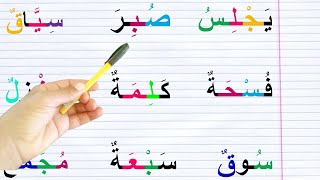 يَجْلِسُ صُبِرَ سِيَّاقٌ
فُسْحَةٌ كَلِمَةٌ
سُوقٌ سَبْعَةٌ